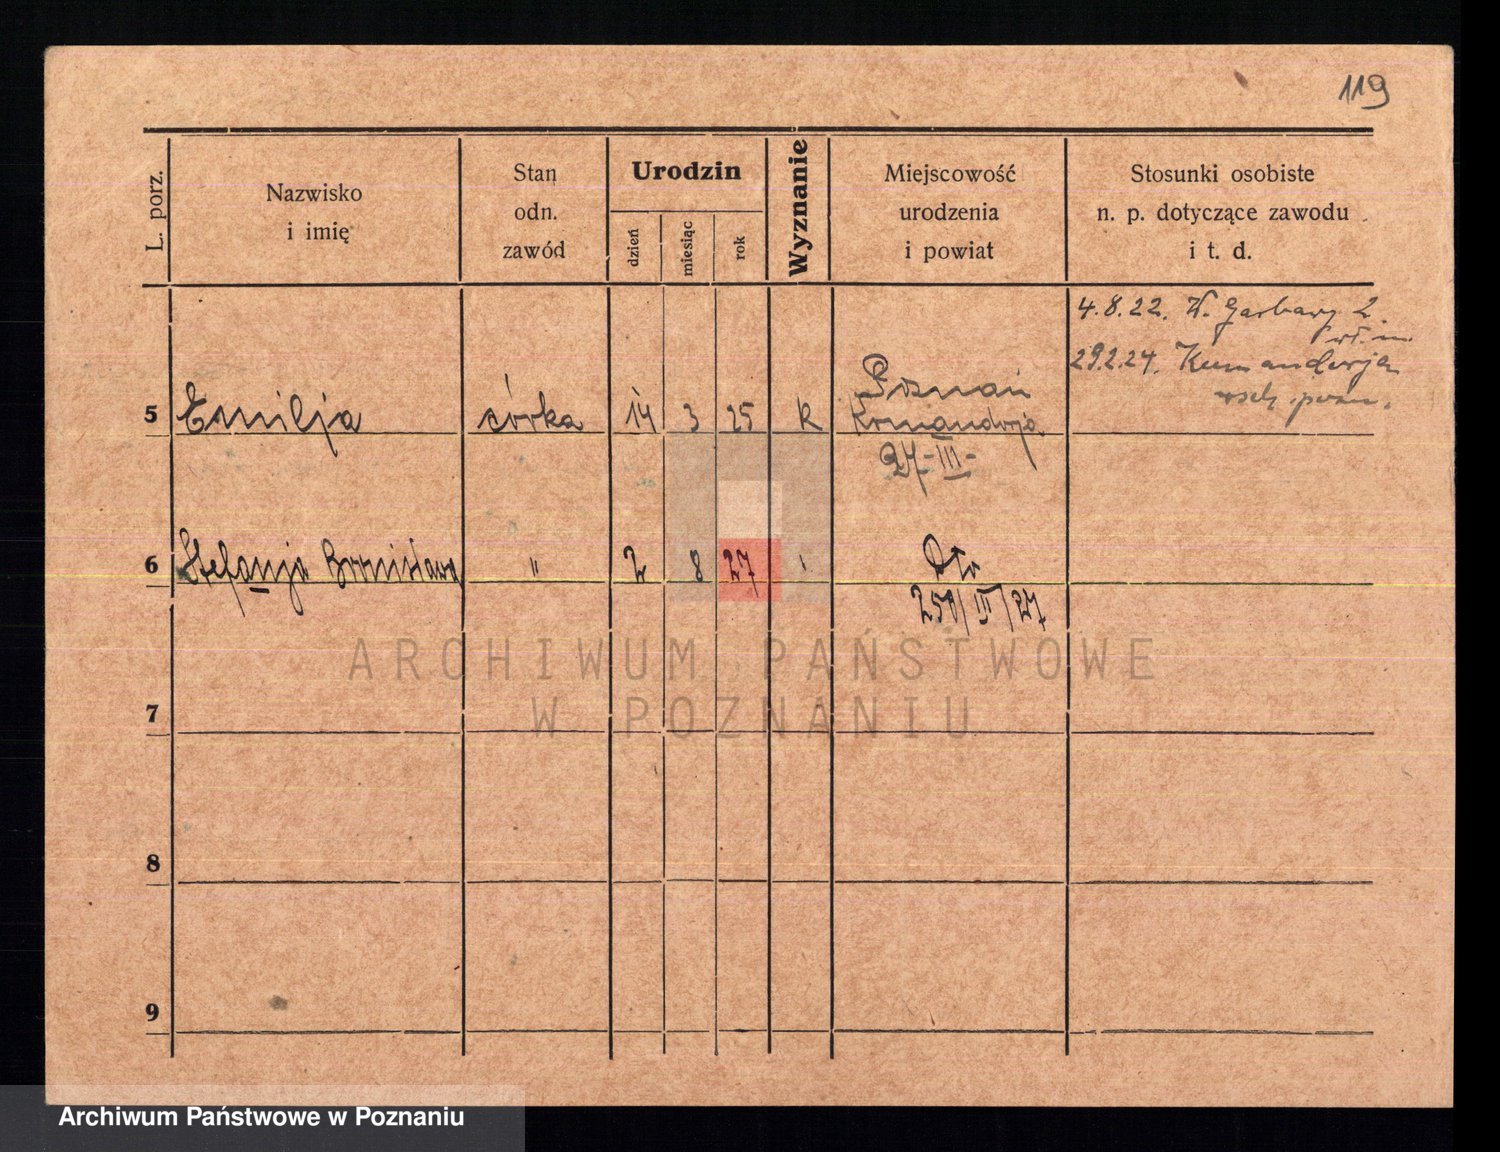 119
L. porz.
Nazwisko
i imię
Stan
odn.
zawód
Urodzin
dzień
miesiąc
rok
Wyznanie
Miejscowość
urodzenia
i powiat
Stosunki osobiste
n. p. dotyczące zawodu
i t. d.
4.8.22. W. Garbary 2
29.2.24. Kumandorja
5 Emilja córka 14 3 25 k Poznań
Komandorja
27-III-
6 Stefanja Bronisława " 2 8 27 Dto
250/III/27
7
8
9
ARCHIWUM PAŃSTWOWE
W POZNANIU
Archiwum Państwowe w Poznaniu